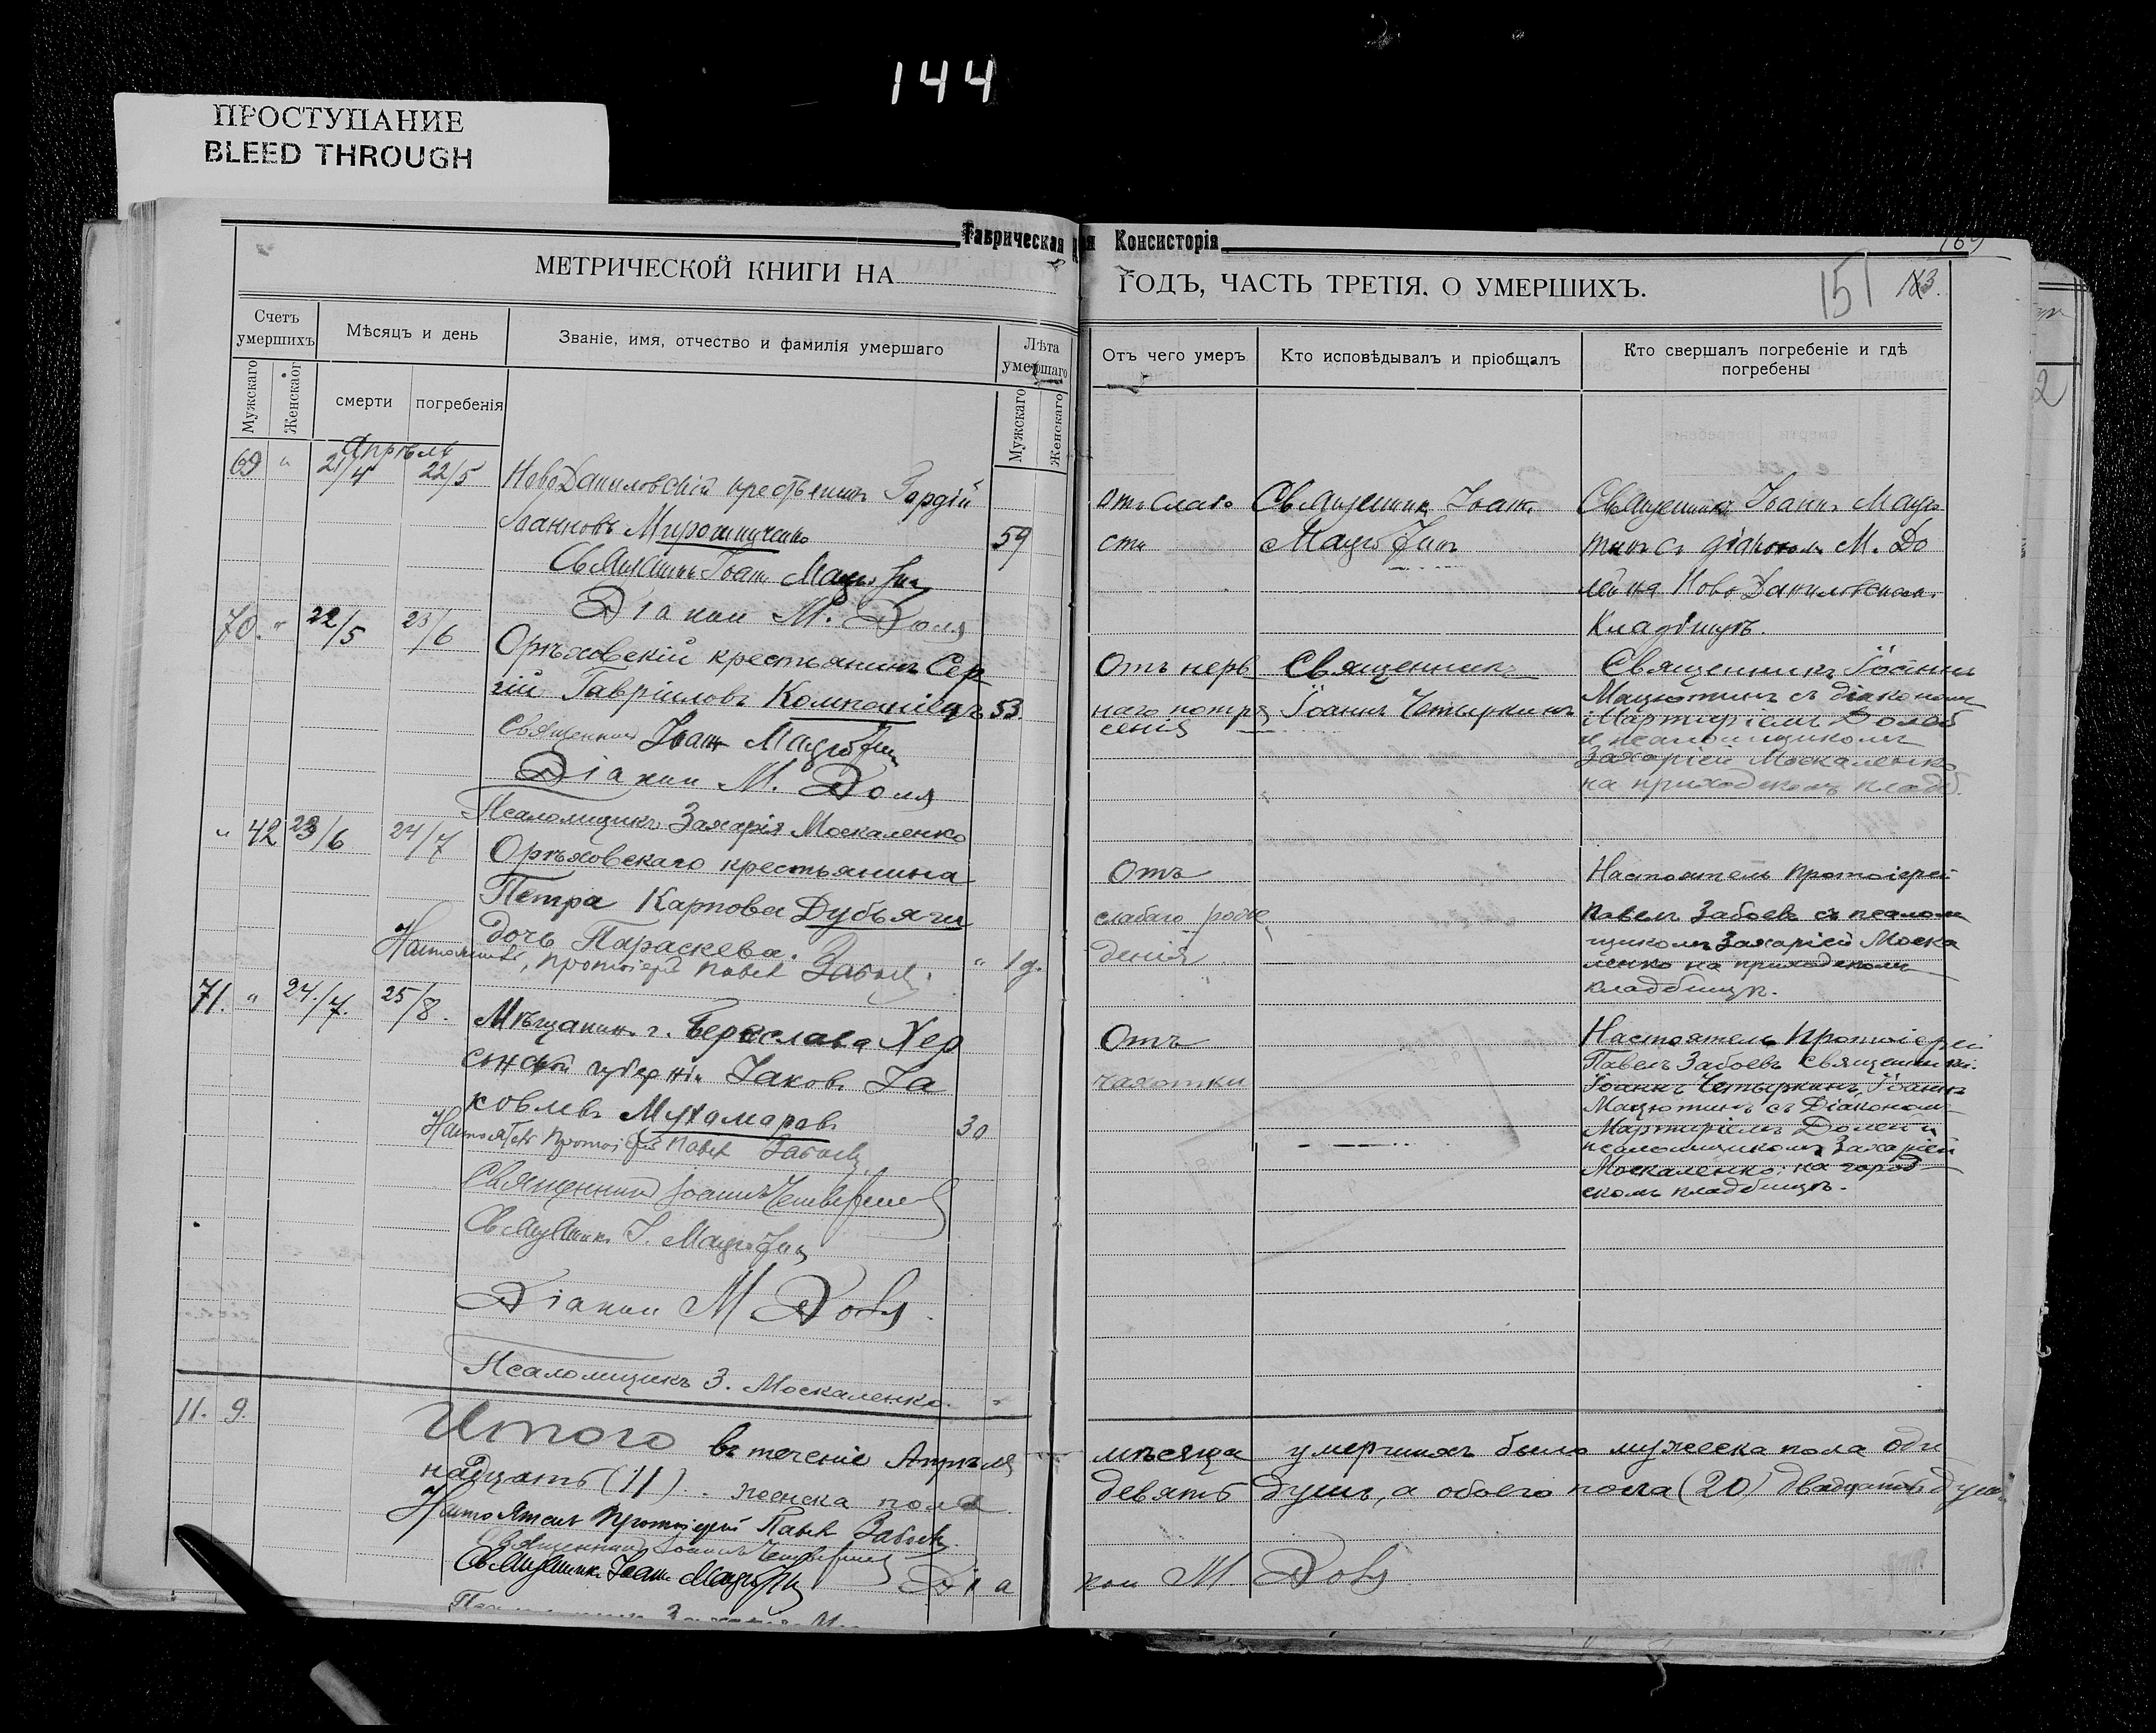 144
ПРОСТУПАНИЕ
BLEED THROUGH
Таврическая Консисторія
169
МЕТРИЧЕСКОЙ КНИГИ НА
ГОДЪ, ЧАСТЬ ТРЕТІЯ, О УМЕРШИХЪ.
151
Счетъ умершихъ
Мѣсяцъ и день
Званіе, имя, отчество и фамилія умершаго
Лѣта умершаго
Отъ чего умеръ
Кто исповѣдывалъ и пріобщалъ
Кто свершалъ погребеніе и гдѣ погребены
Мужскаго
Женскаог
смерти
погребенія
Мужскаго
Женскаго
Апрѣль
69 " 21/4 22/5
НовоДаниловскій крестьянинъ Гордій
Іоанновъ Мирошниченко
59
Священникъ Іоаннъ Мацютинъ
Діаконъ М. Доля
Отъ слабо
сти
Священникъ Іоаннъ
Мацютинъ
Священникъ Іоаннъ Мацю
тинъ съ діакономъ М. До
лей на НовоДаниловскомъ
Кладбищѣ.
70. " 22/5 23/6
Орѣховскій крестьянинъ Сер
гій Гавріиловъ Компаніецъ
53
Священникъ Іоаннъ Мацютинъ
Діаконъ М. Доля
Псаломщикъ Захарія Москаленко
Отъ нерв
наго потря
сенія
Священникъ
Іоаннъ Четыркинъ
Священникъ Іоаннъ
Мацютинъ съ діакономъ
Мартиріемъ Долей
и псаломщикомъ
Захаріей Москаленко
на приходскомъ кладб.
" 42 23/6 24/7
Орѣховскаго крестьянина
Петра Карпова Дубъяги
дочь Параскева.
Настоятель, Протоіерей Павелъ Забоевъ.
" 1 г.
Отъ
слабаго рож
денія
Настоятель Протоіерей
Павелъ Забоевъ съ псалом
щикомъ Захаріей Моска
ленко на приходскомъ
кладбищѣ.
71. " 24/7. 25/8.
Мѣщанинъ г. Берислава Хер
сонской губерніи Іаковъ Іа
ковлевъ Мухамаровъ
30
Настоятель Протоіерей Павелъ Забоевъ
Священникъ Іоаннъ Четыркинъ
Священникъ І. Мацютинъ
Діаконъ М Доля
Псаломщикъ З. Москаленко.
Отъ
чахотки
Настоятель Протоіерей
Павелъ Забоевъ Священники:
Іоаннъ Четыркинъ, Іоаннъ
Мацютинъ съ Діакономъ
Мартиріемъ Долей и
псаломщикомъ Захаріей
Москаленко; на город
скомъ кладбищѣ.
11. 9.
Итого въ теченіе Апрѣля мѣсяца умершихъ было мужеска пола оди
надцать (11). женска пола девять душъ, а обоего пола (20) двадцать душъ
Настоятель Протоіерей Павелъ Забоевъ.
Священникъ Іоаннъ Четыркинъ
Священникъ Іоаннъ Мацютинъ
Діаконъ М. Доля